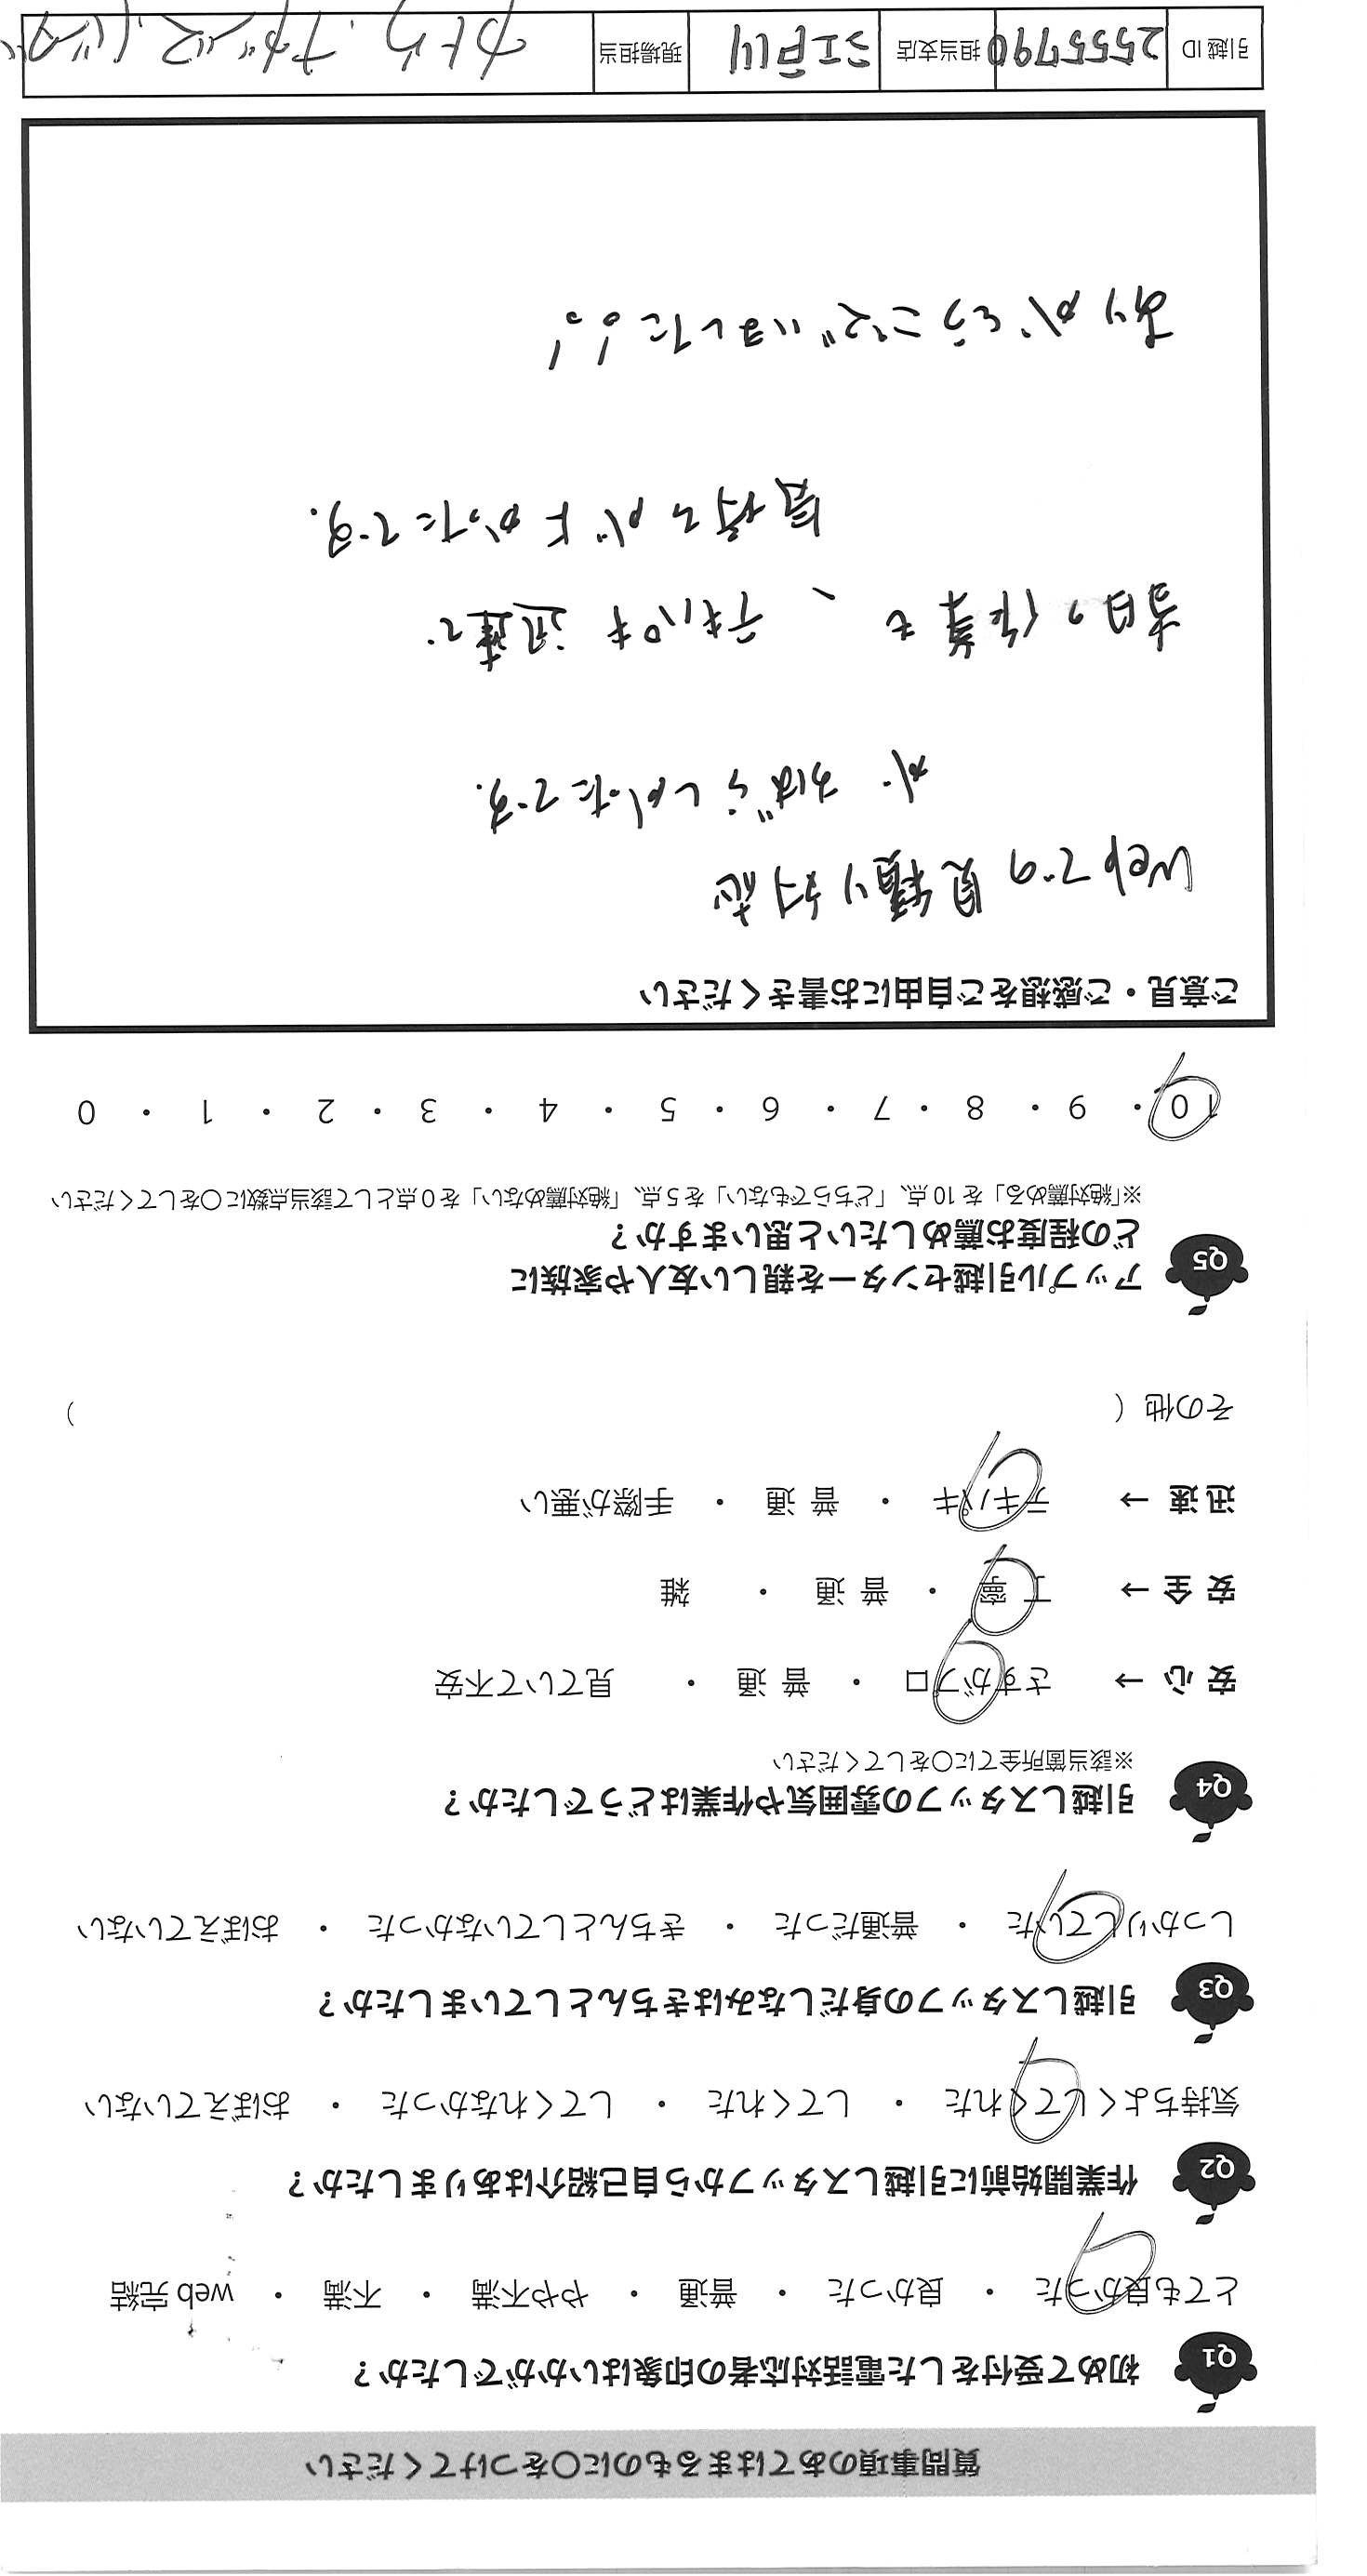 質問事項のあてはまるものに○をつけてください
Q1 初めて受付をした電話対応者の印象はいかがでしたか？
とても良かった ・ 良かった ・ 普通 ・ やや不満 ・ 不満 ・ web 完結
Q2 作業開始前に引越しスタッフから自己紹介はありましたか？
気持ちよくしてくれた ・ してくれた ・ してくれなかった ・ おぼえていない
Q3 引越しスタッフの身だしなみはきちんとしていましたか？
しっかりしていた ・ 普通だった ・ きちんとしていなかった ・ おぼえていない
Q4 引越しスタッフの雰囲気や作業はどうでしたか？
※該当箇所全てに○をしてください
安心 → さすがプロ ・ 普通 ・ 見ていて不安
安全 → 丁寧 ・ 普通 ・ 雑
迅速 → テキパキ ・ 普通 ・ 手際が悪い
その他 （ ）
Q5 アップル引越センターを親しい友人や家族に
どの程度お薦めしたいと思いますか？
※「絶対薦める」を 10 点、「どちらでもない」を 5 点、「絶対薦めない」を 0 点として該当点数に○をしてください
10 ・ 9 ・ 8 ・ 7 ・ 6 ・ 5 ・ 4 ・ 3 ・ 2 ・ 1 ・ 0
ご意見・ご感想をご自由にお書きください
Webでの見積り対応
がすばらしかったです.
当日の作業も、テキパキ迅速で
気持ちがよかったです.
ありがとうございました！。！
引越 ID 2555790 担当支店 江戸川 現場担当 かとう.